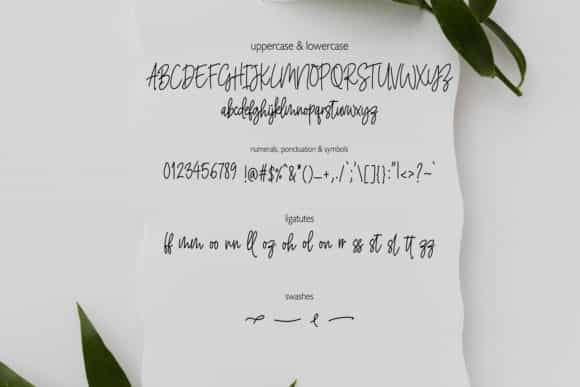 uppercase & lowercase
ABCDEFGHIJKLMNOPQRSTUVWXYZ
abcdefghijklmnopqrstuvwxyz
numerals, ponctuation & symbols
0123456789 !@#$%^&*()_+,./`;'\[]{}:"|<>?~`
ligatutes
ff mm oo nn ll oz oh ol on rr ss st sl tt zz
swashes